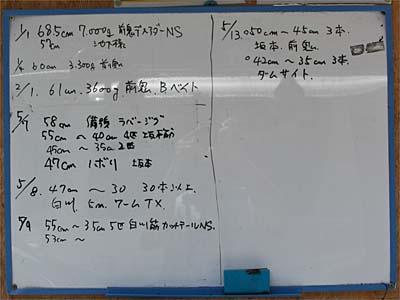 1/1 68.5cm 7.000g 前鬼 NS
57cm
1/6 60cm 3.300g 前鬼
2/1. 61cm. 3600g 前鬼. Bベイト
5/7 58cm 備後 ラバージグ
55cm〜40cm 4匹 坂本筋
45cm〜35cm 2匹
47cm ノボリ 坂本
5/8. 47cm 〜30 30本以上.
白川 5m. ワーム TX.
5/9 55cm〜35cm 5匹 白川筋 カットテールNS.
53cm 〜
5/13. 50cm〜45cm 3本.
坂本. 前鬼.
42cm〜35cm 3本.
ダムサイト.